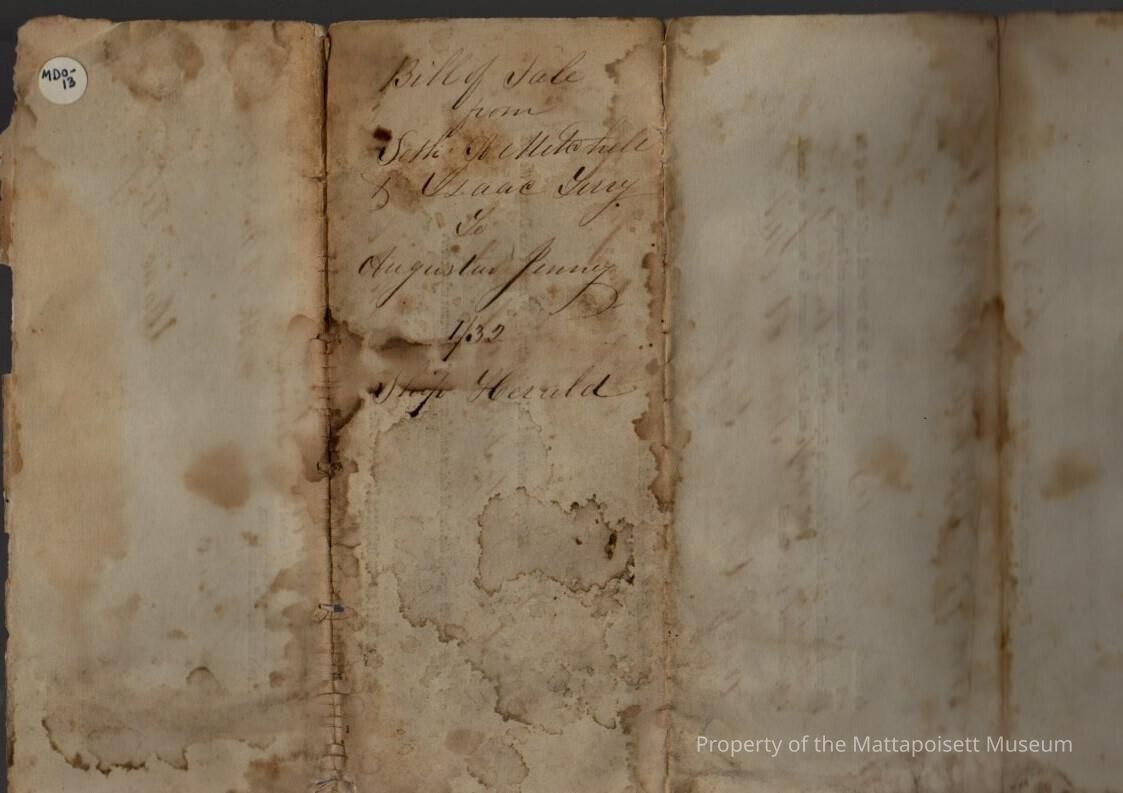 MDO-
13
Bill of Sale
from
Seth A Mitchell
& Isaac Terry
To
Augustus Jenney
1/32
Ship Herald
Property of the Mattapoisett Museum